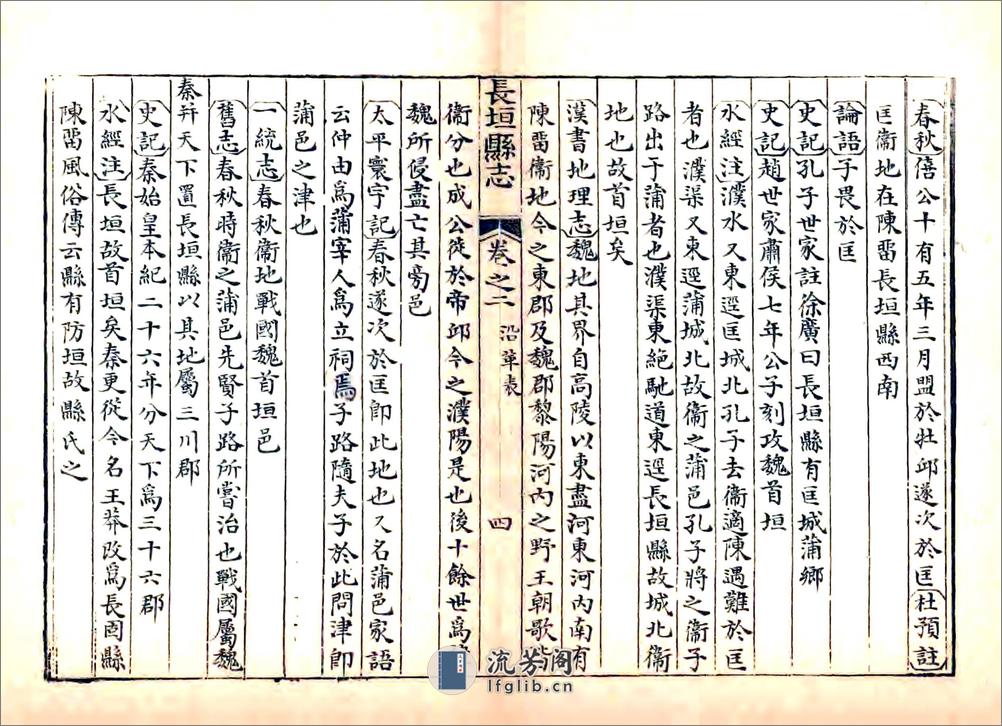 春秋僖公十有五年三月盟於牡邱遂次於匡杜預註
匡衞地在陳畱長垣縣西南
論語子畏於匡
史記孔子世家註徐廣曰長垣縣有匡城蒲鄉
史記趙世家肅侯七年公子刻攻魏首垣
水經注濮水又東逕匡城北孔子去衞適陳遇難於匡
者也濮渠又東逕蒲城北故衞之蒲邑孔子將之衞子
路出于蒲者也濮渠東絕馳道東逕長垣縣故城北衞
地也故首垣矣
漢書地理志魏地其界自高陵以東盡河東河內南有
陳畱衞地今之東郡及魏郡黎陽河內之野王朝歌皆
長垣縣志
卷之二
沿革表
四
衞分也成公徙於帝邱今之濮陽是也後十餘世爲
魏所侵盡亡其旁邑
太平寰宇記春秋遂次於匡卽此地也又名蒲邑家語
云仲由爲蒲宰人爲立祠焉子路隨夫子於此問津卽
蒲邑之津也
一統志春秋衞地戰國魏首垣邑
舊志春秋時衞之蒲邑先賢子路所嘗治也戰國屬魏
秦幷天下置長垣縣以其地屬三川郡
史記秦始皇本紀二十六年分天下爲三十六郡
水經注長垣故首垣矣秦更從今名王莽改爲長固縣
陳畱風俗傳云縣有防垣故縣氏之
流芳阁
lfglib.cn